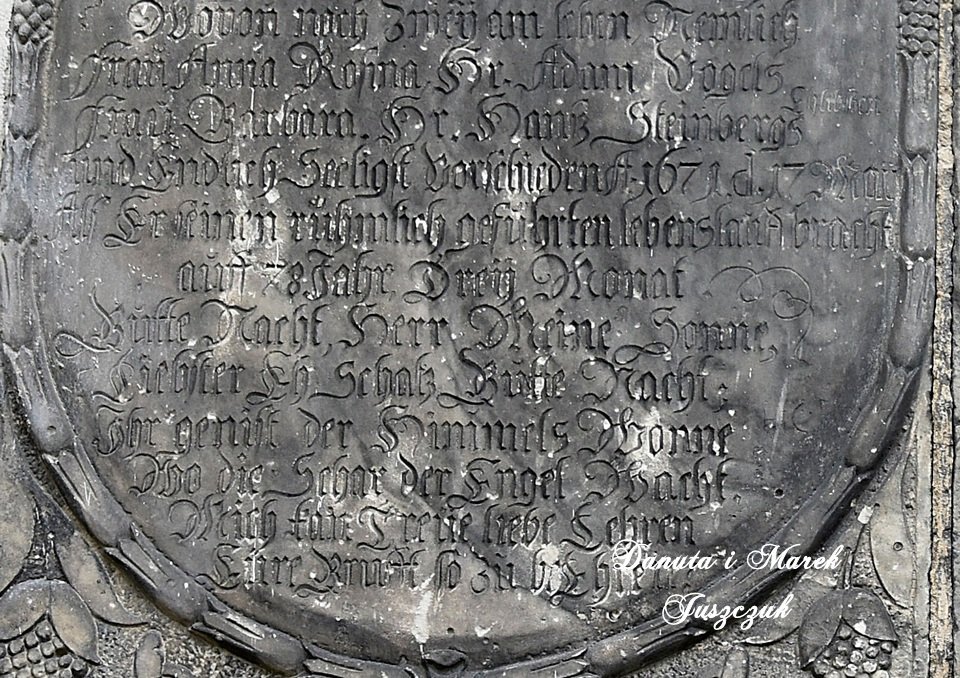 Wovon noch Zweÿ am leben, Nemlich
Fraü Anna Rosina, Hr. Adam Vogels,
Fraü Barbara. Hr. Hanß Steinbergs
und Endlich Seeligst Vorschieden A. 1671. d. 17 Maii
Alß Er seinen rühmlich geführten lebenslauff bracht
auff 78. Jahr, Dreÿ Monat
Gutte Nacht, Herr, Meine Sonne,
Liebster Eh Schatz Gutte Nacht;
Ihr genist der Himmels Wonne
Wo die Schar der Engel Wacht,
Mich kan Treüe liebe Lehren
Eüre Grufft so zu
Danuta i Marek
Juszczuk